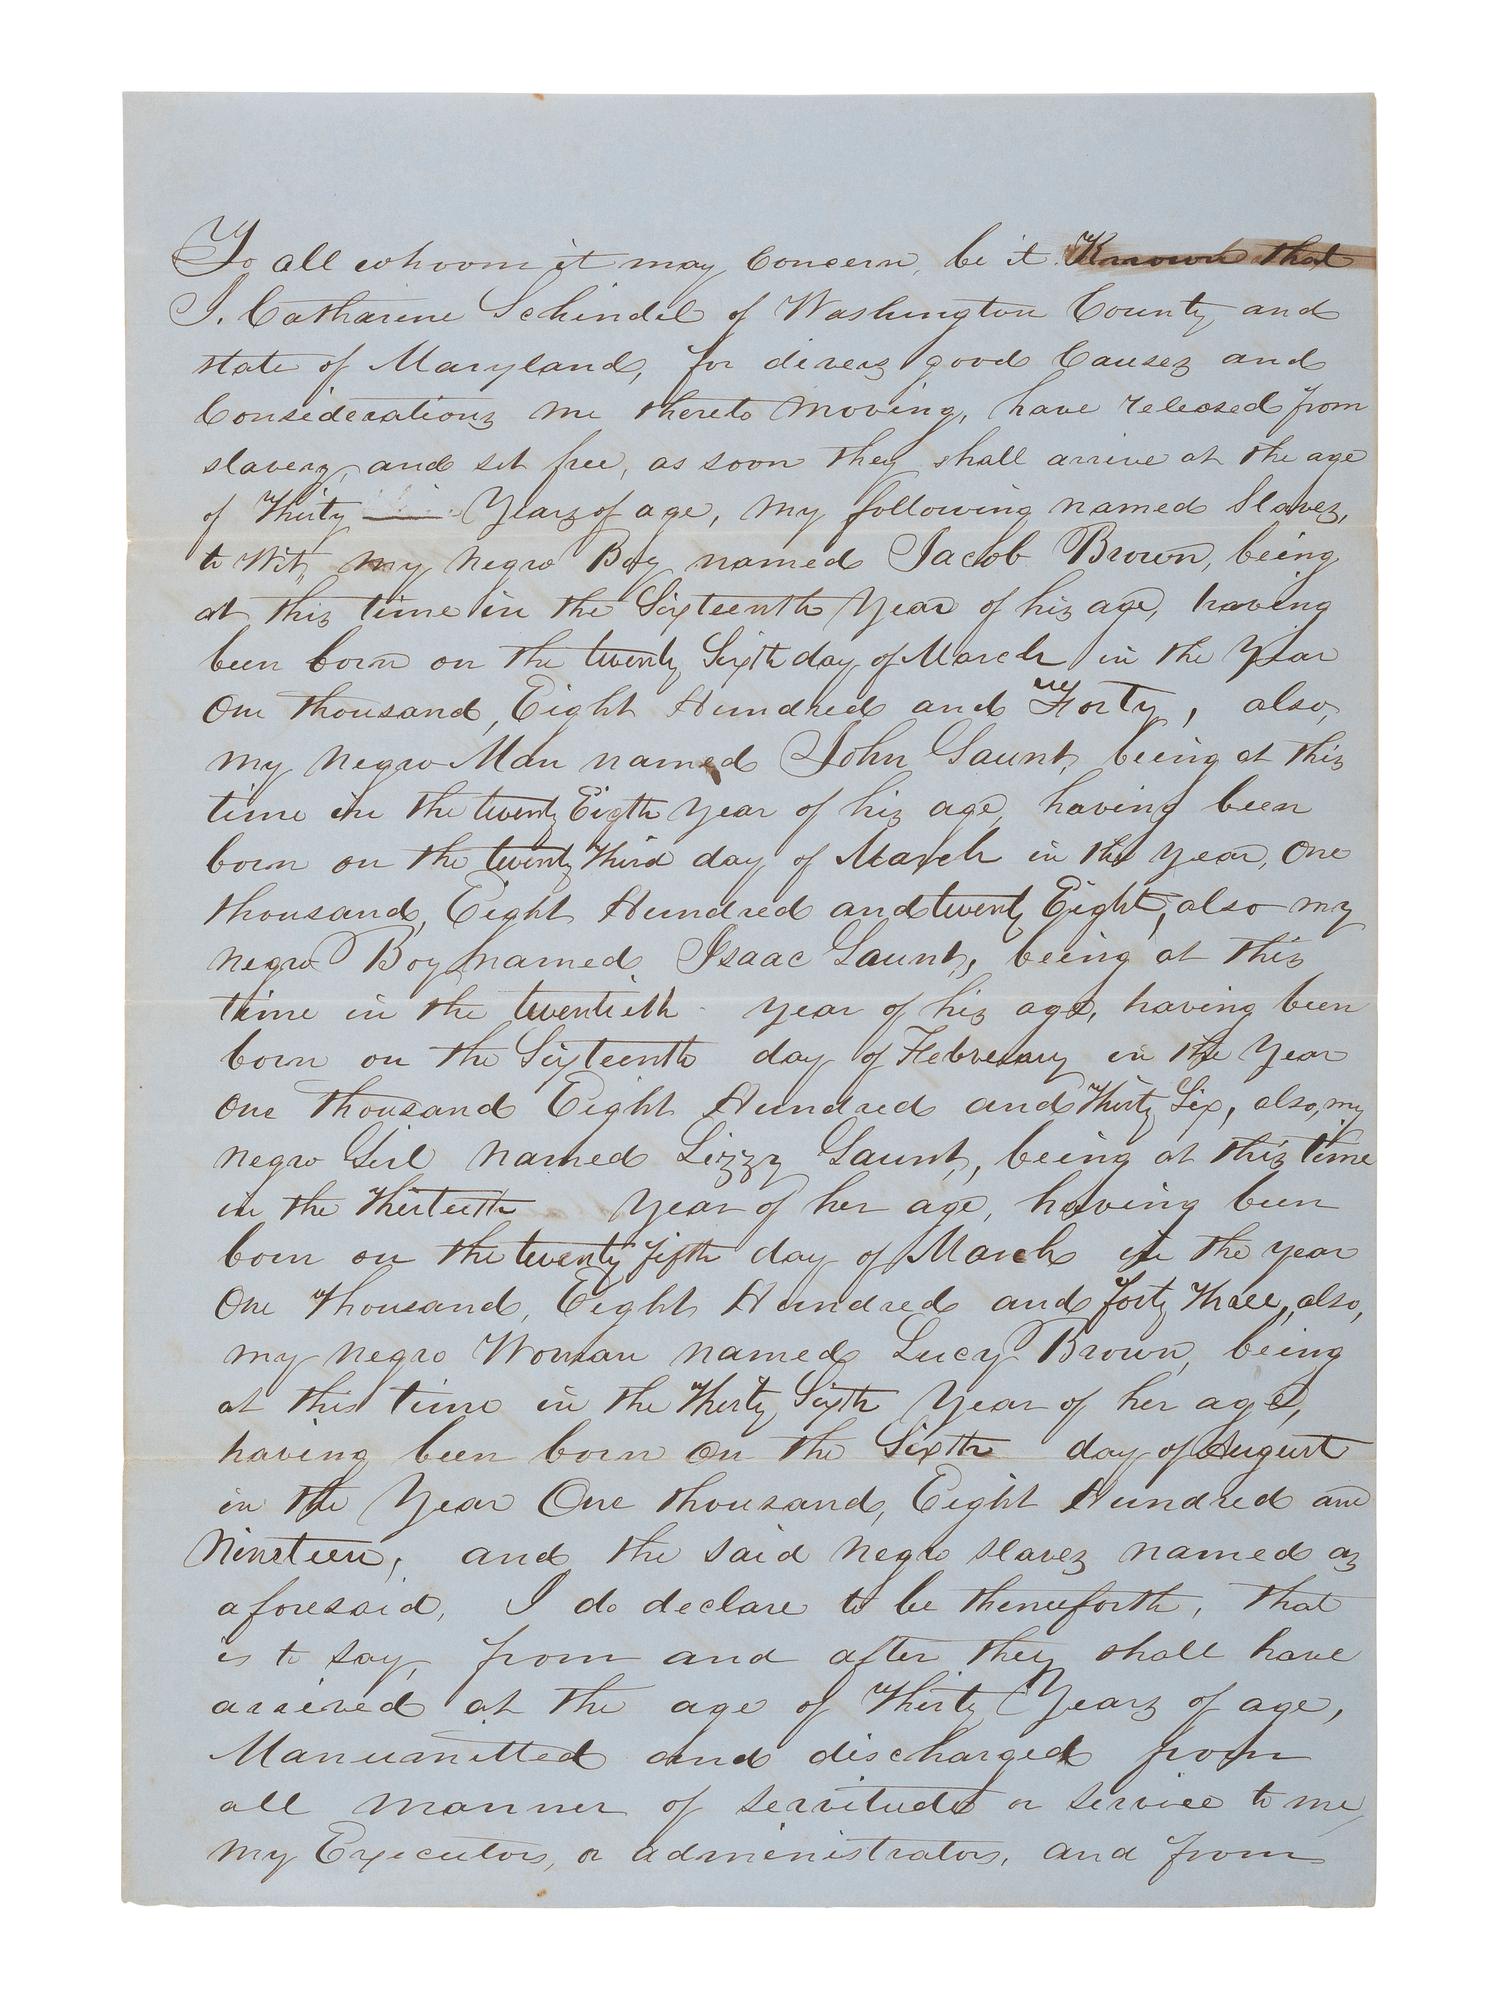 To all whoom it may Concern, be it Known that
I. Catharine Schindel of Washington County and
state of Maryland, for divers good Causes and
Considerations me thereto moving, have released from
slavery, and set free, as soon they shall arrive at the age
of Thirty Years of age, my following named Slaves,
to Wit, my negro Boy named Jacob Brown, being
at this time in the Sixteenth Year of his age, having
been born on the twenty Sixth day of March in the Year
One thousand, Eight Hundred and Forty, also,
my negro Man named John Gaunt, being at this
time in the twenty Eigth year of his age, having been
born on the twenty third day of March in the year, One
thousand, Eight Hundred and twenty Eight, also my
negro Boy named Isaac Gaunt, being at this
time in the twentieth year of his age, having been
born on the Sixteenth day of February in the Year
One thousand Eight Hundred and Thirty Six, also, my
negro Girl named Lizzy Gaunt, being at this time
in the Thirteeth Year of her age, having been
born on the twenty fifth day of March in the year
One Thousand, Eight Hundred and forty three, also,
my negro Woman named Lucy Brown, being
at this time in the Thirty Sixth Year of her age,
having been born on the Sixth day of August
in the Year One thousand, Eight Hundred and
Nineteen, and the said negro slaves named as
aforesaid, I do declare to be thenceforth, that
is to say, from and after they shall have
arrived at the age of Thirty Years of age,
Manumitted and discharged from
all manner of servitude or service to me,
my Executors, or administrators, and from